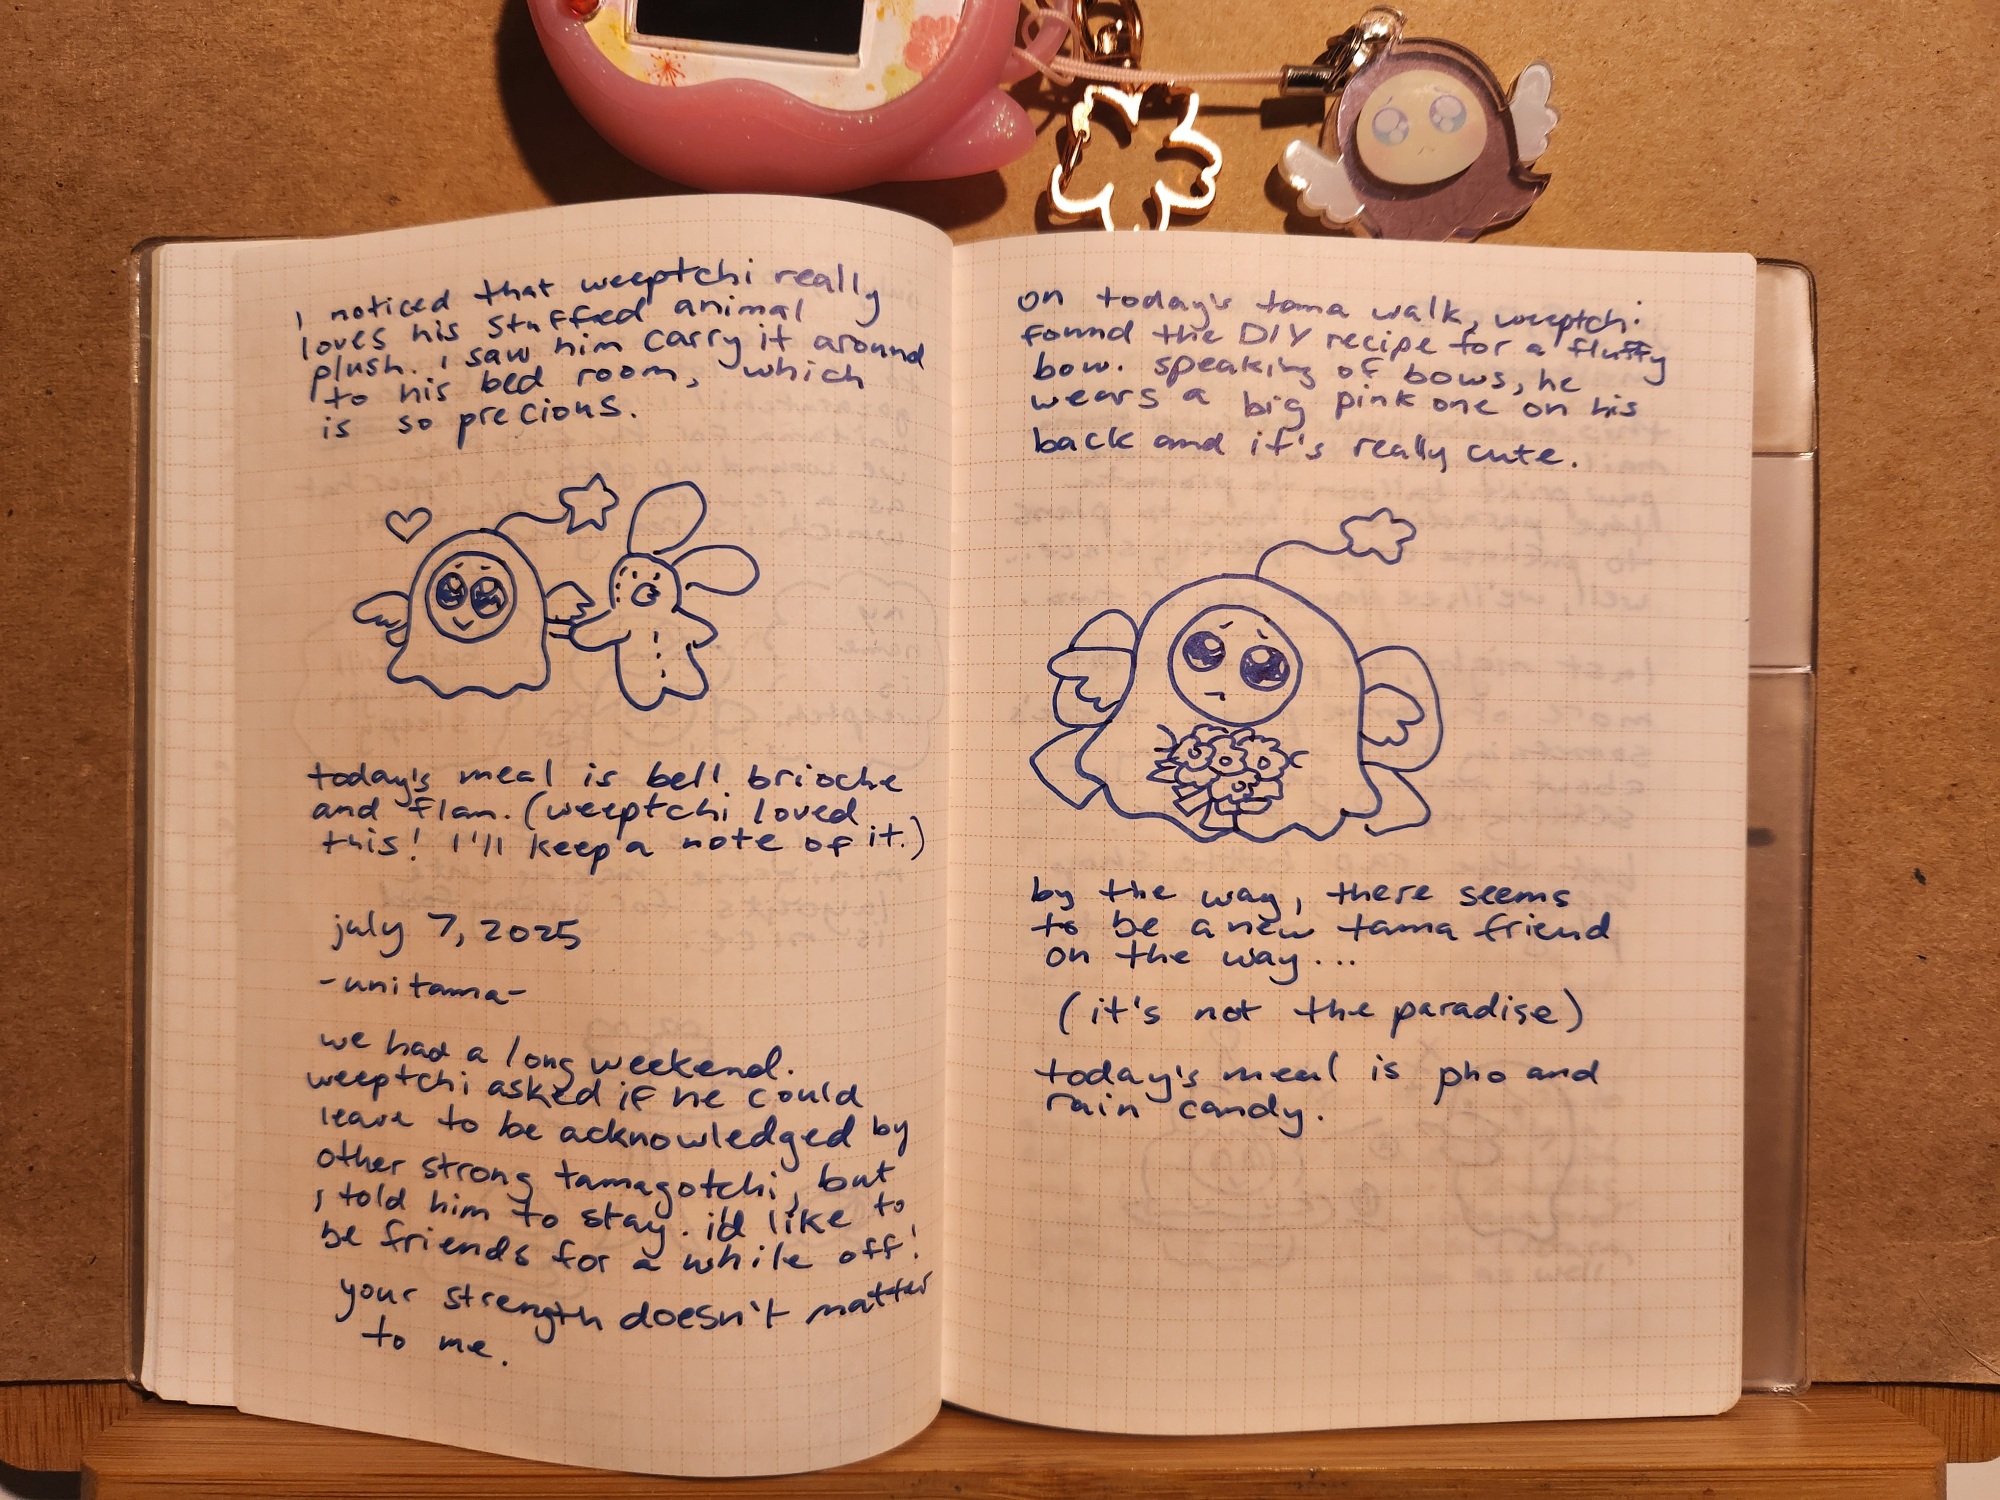 i noticed that weeptchi really
loves his stuffed animal
plush. i saw him carry it around
to his bed room, which
is so precious.
today's meal is bell brioche
and flan. (weeptchi loved
this! i'll keep a note of it.)
july 7, 2025
-unitama-
we had a long weekend.
weeptchi asked if he could
leave to be acknowledged by
other strong tamagotchi, but
i told him to stay. i'd like to
be friends for a while off!
your strength doesn't matter
to me.
on today's tama walk, weeptchi
found the DIY recipe for a fluffy
bow. speaking of bows, he
wears a big pink one on his
back and it's really cute.
by the way, there seems
to be a new tama friend
on the way...
(it's not the paradise)
today's meal is pho and
rain candy.